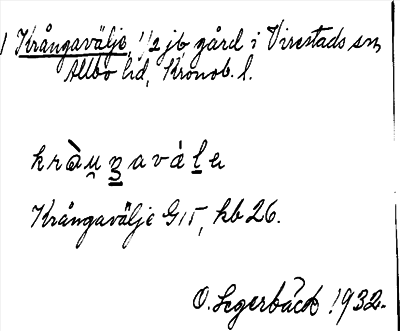 1 Krångavälje, 1/2 jb gård i Virestads sn,
Allbo hd, Kronob. l.
kràu̯ŋavàlɐ
Krångavälje G15, kb 26.
O. Segerbäck 1932.